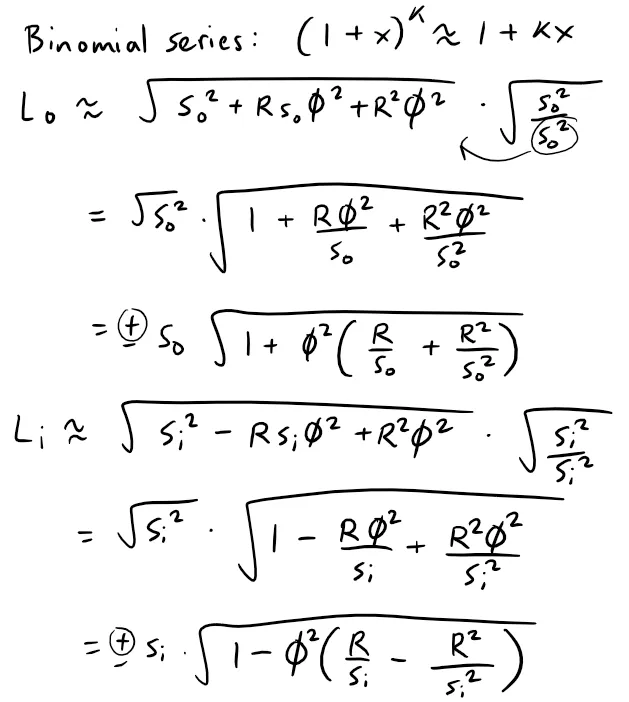 Binomial series: (1 + x)^K ≈ 1 + Kx
L₀ ≈ √(s₀² + Rs₀ϕ² + R²ϕ²) · √(s₀²/s₀²)
= √(s₀²) · √(1 + Rϕ²/s₀ + R²ϕ²/s₀²)
= ± s₀ √(1 + ϕ²(R/s₀ + R²/s₀²))
Lᵢ ≈ √(sᵢ² − Rsᵢϕ² + R²ϕ²) · √(sᵢ²/sᵢ²)
= √(sᵢ²) · √(1 − Rϕ²/sᵢ + R²ϕ²/sᵢ²)
= ± sᵢ · √(1 − ϕ²(R/sᵢ − R²/sᵢ²))